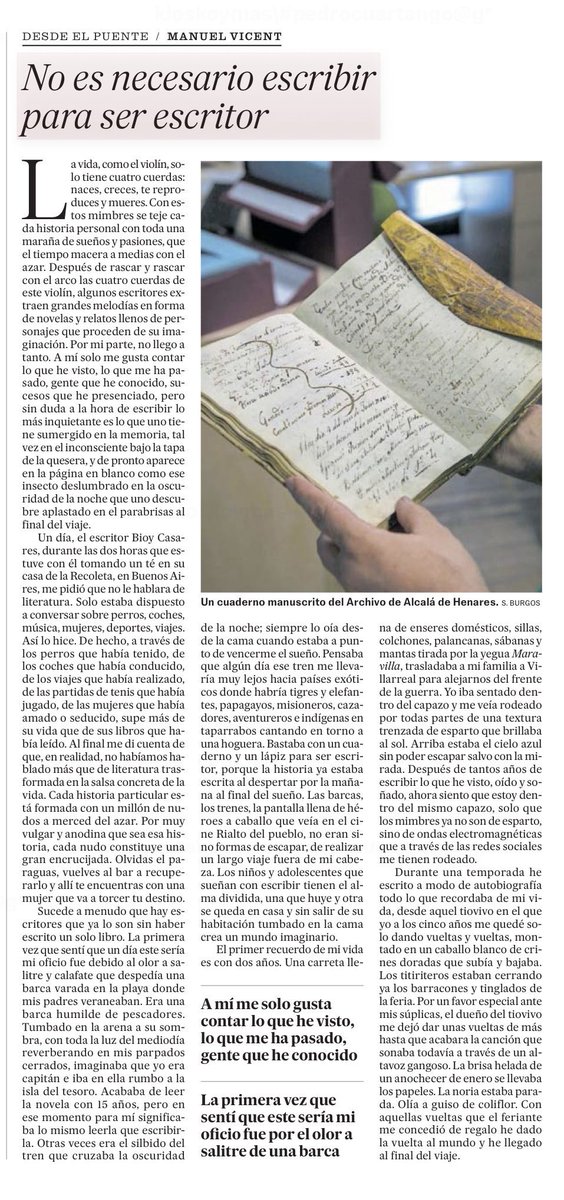 DESDE EL PUENTE / MANUEL VICENT
No es necesario escribir
para ser escritor
La vida, como el violín, so-
lo tiene cuatro cuerdas:
naces, creces, te repro-
duces y mueres. Con es-
tos mimbres se teje ca-
da historia personal con toda una
maraña de sueños y pasiones, que
el tiempo macera a medias con el
azar. Después de rascar y rascar
con el arco las cuatro cuerdas de
este violín, algunos escritores ex-
traen grandes melodías en forma
de novelas y relatos llenos de per-
sonajes que proceden de su ima-
ginación. Por mi parte, no llego a
tanto. A mí solo me gusta contar
lo que he visto, lo que me ha pa-
sado, gente que he conocido, su-
cesos que he presenciado, pero
sin duda a la hora de escribir lo
más inquietante es lo que uno tie-
ne sumergido en la memoria, tal
vez en el inconsciente bajo la tapa
de la quesera, y de pronto aparece
en la página en blanco como ese
insecto deslumbrado en la oscu-
ridad de la noche que uno descu-
bre aplastado en el parabrisas al
final del viaje.
Un día, el escritor Bioy Casa-
res, durante las dos horas que es-
tuve con él tomando un té en su
casa de la Recoleta, en Buenos Ai-
res, me pidió que no le hablara de
literatura. Solo estaba dispuesto
a conversar sobre perros, coches,
música, mujeres, deportes, viajes.
Así lo hice. De hecho, a través de
los perros que había tenido, de
los coches que había conducido,
de los viajes que había realizado,
de las partidas de tenis que había
jugado, de las mujeres que había
amado o seducido, supe más de
su vida que de sus libros que ha-
bía leído. Al final me di cuenta de
que, en realidad, no habíamos ha-
blado más que de literatura tras-
formada en la salsa concreta de la
vida. Cada historia particular es-
tá formada con un millón de nu-
dos a merced del azar. Por muy
vulgar y anodina que sea esa his-
toria, cada nudo constituye una
gran encrucijada. Olvidas el pa-
raguas, vuelves al bar a recupe-
rarlo y allí te encuentras con una
mujer que va a torcer tu destino.
Sucede a menudo que hay es-
critores que ya lo son sin haber
escrito un solo libro. La primera
vez que sentí que un día este sería
mi oficio fue debido al olor a sa-
litre y calafate que despedía una
barca varada en la playa donde
mis padres veraneaban. Era una
barca humilde de pescadores.
Tumbado en la arena a su som-
bra, con toda la luz del mediodía
reverberando en mis parpados
cerrados, imaginaba que yo era
capitán e iba en ella rumbo a la
isla del tesoro. Acababa de leer
la novela con 15 años, pero en
ese momento para mí significa-
ba lo mismo leerla que escribir-
la. Otras veces era el silbido del
tren que cruzaba la oscuridad
Un cuaderno manuscrito del Archivo de Alcalá de Henares. S. BURGOS
de la noche; siempre lo oía des-
de la cama cuando estaba a pun-
to de vencerme el sueño. Pensaba
que algún día ese tren me lleva-
ría muy lejos hacia países exóti-
cos donde habría tigres y elefan-
tes, papagayos, misioneros, caza-
dores, aventureros e indígenas en
taparrabos cantando en torno a
una hoguera. Bastaba con un cua-
derno y un lápiz para ser escri-
tor, porque la historia ya estaba
escrita al despertar por la maña-
na al final del sueño. Las barcas,
los trenes, la pantalla llena de hé-
roes a caballo que veía en el ci-
ne Rialto del pueblo, no eran si-
no formas de escapar, de realizar
un largo viaje fuera de mi cabe-
za. Los niños y adolescentes que
sueñan con escribir tienen el al-
ma dividida, una que huye y otra
se queda en casa y sin salir de su
habitación tumbado en la cama
crea un mundo imaginario.
El primer recuerdo de mi vida
es con dos años. Una carreta lle-
A mí me solo gusta
contar lo que he visto,
lo que me ha pasado,
gente que he conocido
La primera vez que
sentí que este sería mi
oficio fue por el olor a
salitre de una barca
na de enseres domésticos, sillas,
colchones, palancanas, sábanas y
mantas tirada por la yegua Mara-
villa, trasladaba a mi familia a Vi-
llarreal para alejarnos del frente
de la guerra. Yo iba sentado den-
tro del capazo y me veía rodeado
por todas partes de una textura
trenzada de esparto que brillaba
al sol. Arriba estaba el cielo azul
sin poder escapar salvo con la mi-
rada. Después de tantos años de
escribir lo que he visto, oído y so-
ñado, ahora siento que estoy den-
tro del mismo capazo, solo que
los mimbres ya no son de esparto,
sino de ondas electromagnéticas
que a través de las redes sociales
me tienen rodeado.
Durante una temporada he
escrito a modo de autobiografía
todo lo que recordaba de mi vi-
da, desde aquel tiovivo en el que
yo a los cinco años me quedé so-
lo dando vueltas y vueltas, mon-
tado en un caballo blanco de cri-
nes doradas que subía y bajaba.
Los titiriteros estaban cerrando
ya los barracones y tinglados de
la feria. Por un favor especial ante
mis súplicas, el dueño del tiovivo
me dejó dar unas vueltas de más
hasta que acabara la canción que
sonaba todavía a través de un al-
tavoz gangoso. La brisa helada de
un anochecer de enero se llevaba
los papeles. La noria estaba para-
da. Olía a guiso de coliflor. Con
aquellas vueltas que el feriante
me concedió de regalo he dado
la vuelta al mundo y he llegado
al final del viaje.